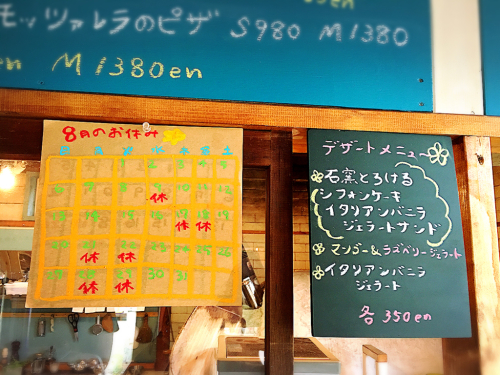 モッツァレラのピザ S980 M1380
en M1380en
8月のお休み
日 月 火 水 木 金 土
1 2 3 4 5
6 7 8 9 10 11 12
休
13 14 15 16 17 18 19
休 休
20 21 22 23 24 25 26
休 休
27 28 29 30 31
休 休
デザートメニュー
石窯とろける
シフォンケーキ
イタリアンバニラ
ジェラートサンド
マンゴー&ラズベリージェラート
イタリアンバニラ
ジェラート
各 350en